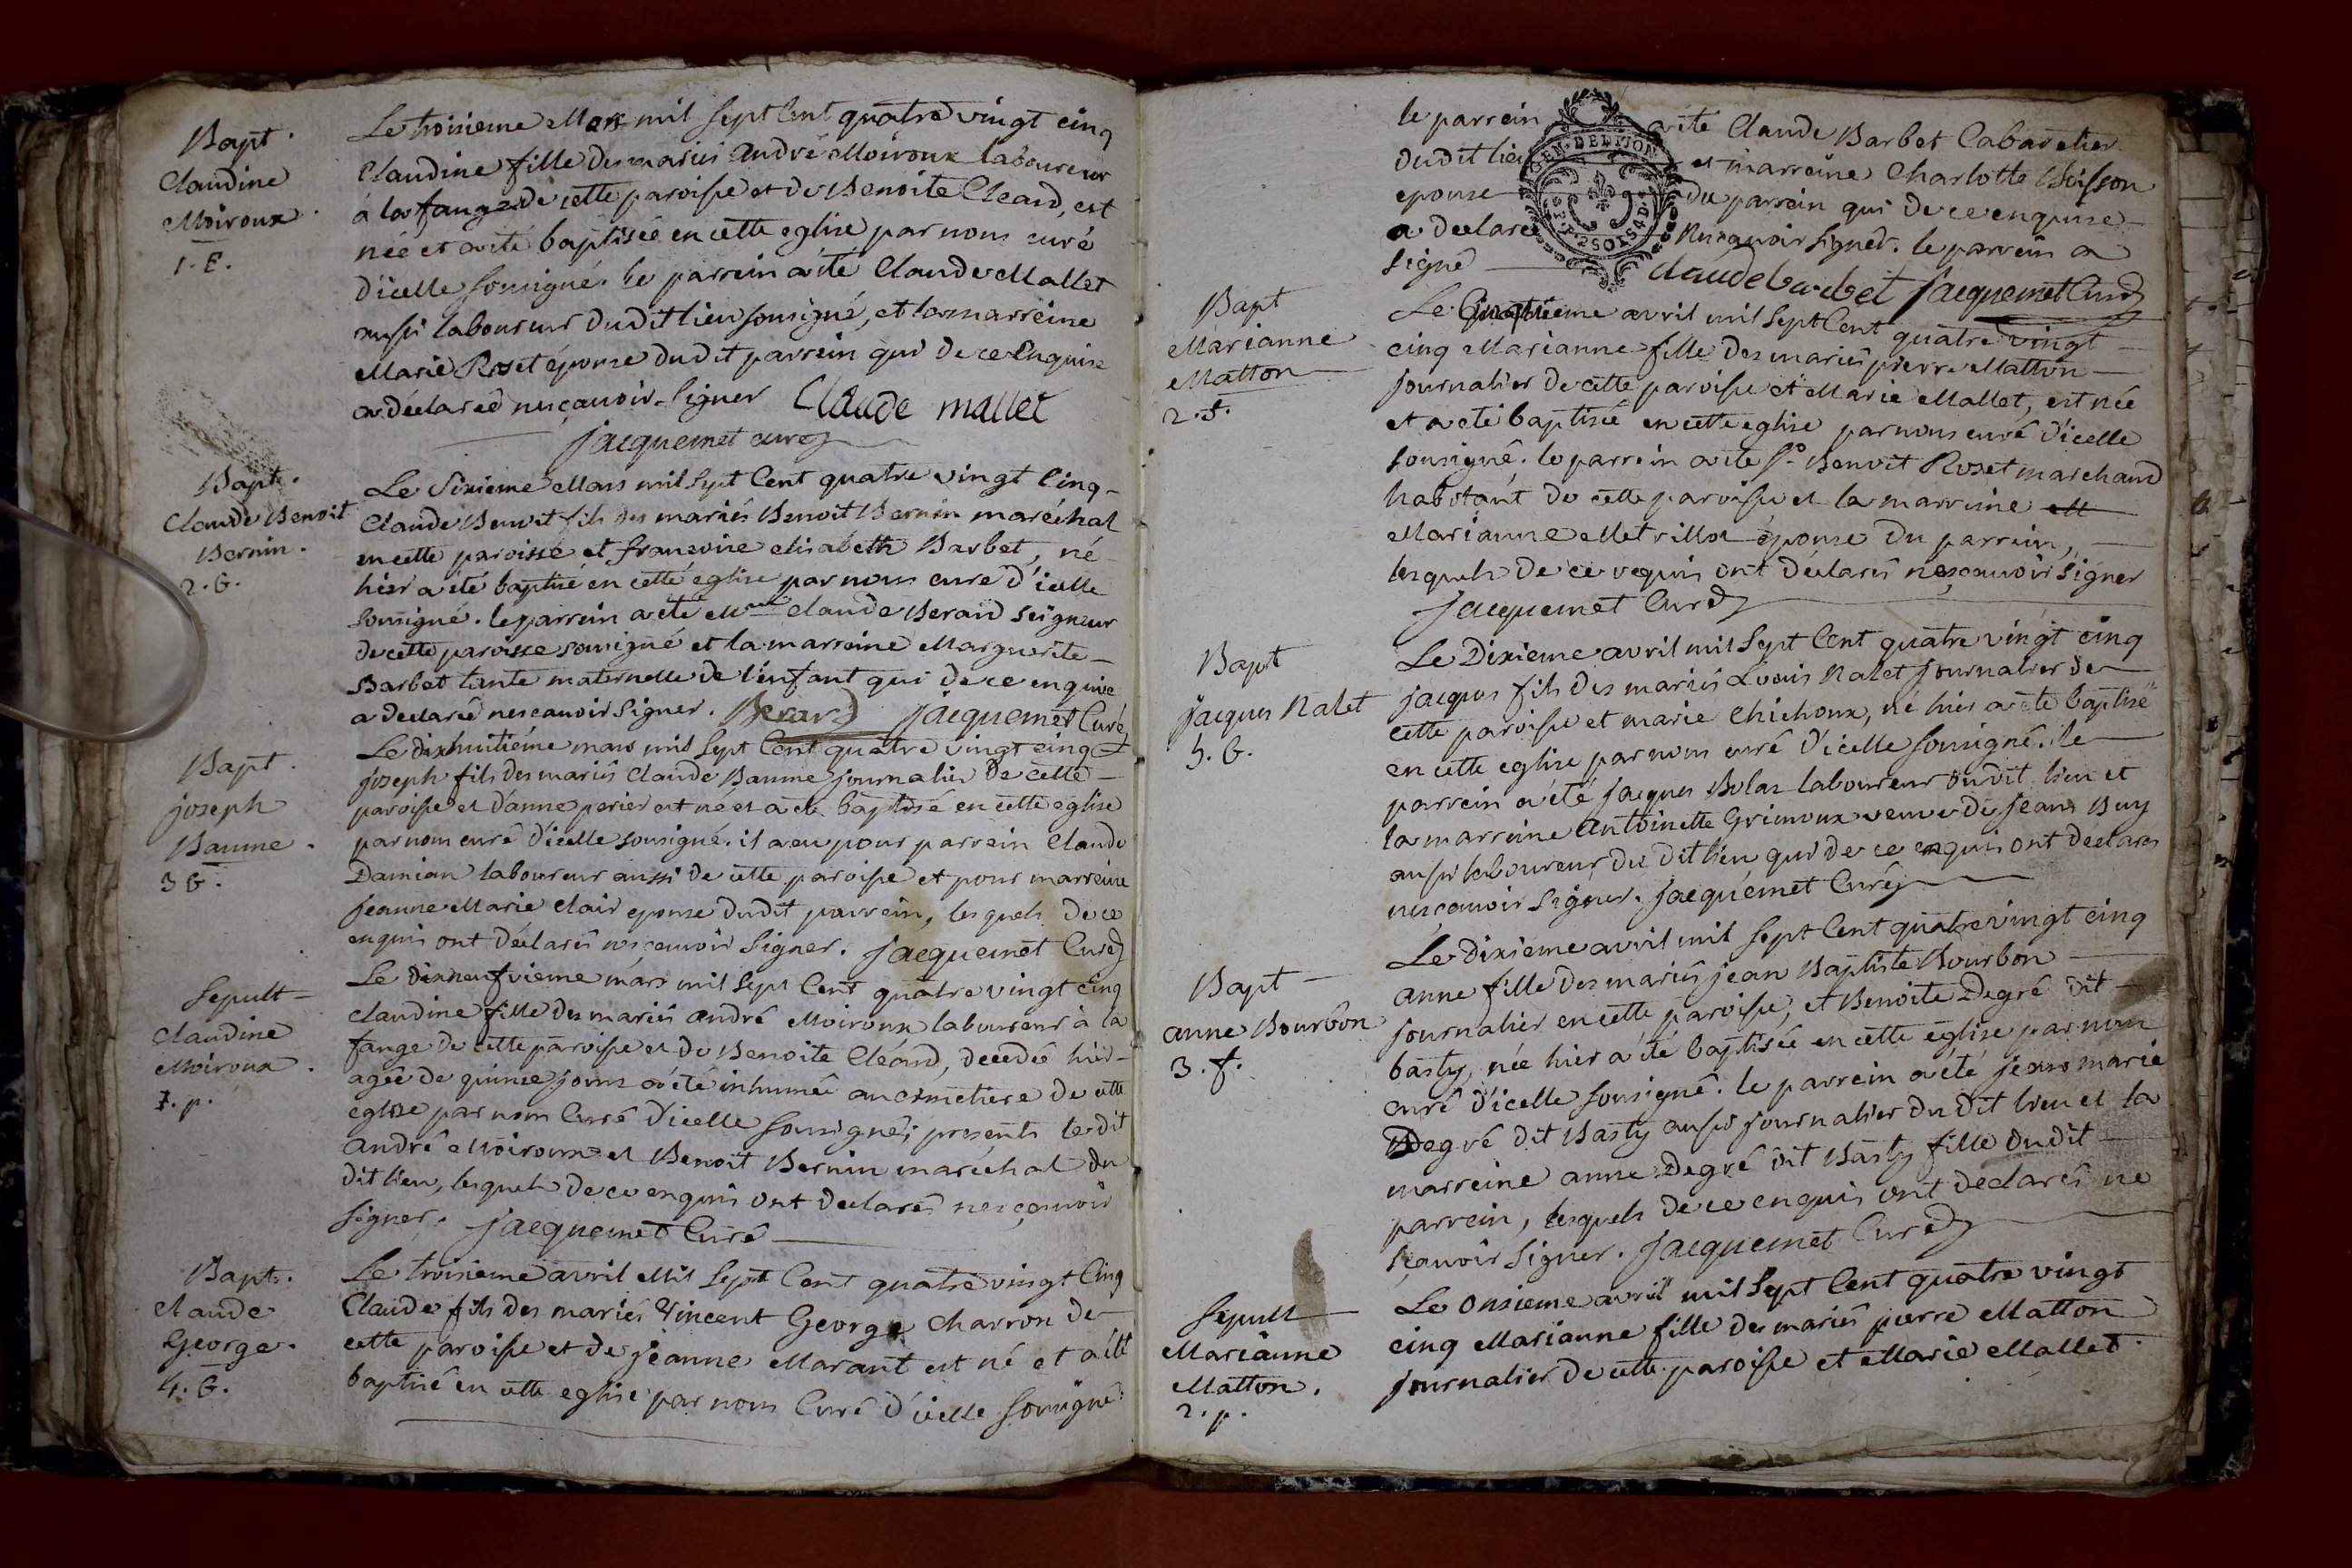 Bapt.
Claudine
Moiroux.
1. F.
Le troisieme Mars mil sept Cent quatre vingt cinq
Claudine fille des mariés andré Moiroux laboureur
à la fange de cette paroisse et de Benoite Cleard, est
née et a été baptisée en cette eglise par nous curé
d'icelle soussigné. le parrein a été Claude Mallet
aussi laboureur dudit lieu sousigné, et la marreine
Marie Roset épouse dudit parrein qui de ce Enquise
a déclaréé nesçauoir Signer Claude mallet
jacquemet curé
Bapt.
Claude Benoit
Bernin.
2. G.
Le Sixieme Mars mil sept Cent quatre vingt Cinq
Claude Benoit fils des mariés Benoit Bernin maréchal
en cette paroisse et francoise elisabeth Barbet, né
hier a été baptisé en cette eglise par nous curé d'icelle
sousigné. le parrein a été Claude Berard seigneur
de cette paroisse sousigné et la marreine Marguerite
Barbet tante maternelle de l'enfant qui de ce enquise
a declaréé nescauoir signer. Berard jacquemet Curé
Bapt.
joseph
Baume.
3 G.
Le dixhuitiéme mars mil sept Cent quatre vingt cinq
joseph fils des mariés Claude Baume journalier de cette
paroisse et d'anne perier est né et a été baptisé en cette eglise
par nous curé d'icelle sousigné. il a eu pour parrein Claude
Damian laboureur aussi de cette paroisse et pour marreine
jeanne Marie Clair epouse dudit parrein, lesquels de ce
enquis ont déclarés nescauoir Signer. jacquemet Curé
Sepult
Claudine
Moiroux.
1. p.
Le dixneufvieme mars mil sept Cent quatre vingt cinq
claudine fille des mariés andré Moiroux laboureur à la
fange de cette paroisse et de Benoite Cléard, decedée hier
agée de quinse jours a été inhumée au cimetiere de cette
eglise par nous Curé d'icelle sousigné; presents ledit
andré Moiroux et Benoit Bernin maréchal du
dit lieu, lesquels de ce enquis ont declarés nesçauoir
signer. jacquemet Curé
Bapt.
Claude
George.
4. G.
Le troisieme avril Mil Sept Cent quatre vingt Cinq
Claude fils des mariés Vincent George Charron de
cette paroisse et de jeanne Marant est né et a été
baptisé en cette eglise par nous Curé d'icelle sousigné.
le parrein a été Claude Barbet Cabaretier
dudit lieu et marreine Charlotte Buisson
epouse du parrein qui de ce enquise
a declaré nesçauoir signer. le parrein a
signé
GEN. DE LYON
claude barbet jacquemet Curé
Bapt
Marianne
Matton
2. f.
Le avril mil sept Cent quatre vingt
cinq Marianne fille des mariés pierre Matton
journalier de cette paroisse et Marie Mallet, est née
et a été baptisée en cette eglise par nous curé d'icelle
sousigné. le parrein a été Sr Benoit Roset marchand
habitant de cette paroisse et la marreine
Marianne Metrilla épouse du parrein,
lesquels de ce requis ont déclarés nesçauoir signer
jacquemet Curé
Bapt
jacques Nalet
5. G.
Le Dixieme avril mil sept Cent quatre vingt cinq
jacques fils des mariés Louis Nalet journalier de
cette paroisse et marie Chichoux, né hier a été baptisé
en cette eglise par nous curé d'icelle sousigné. le
parrein a été jacques Bolas laboureur dudit lieu et
la marreine antoinette Grimoux veuve de jean Buy
aussi laboureur du dit lieu qui de ce enquis ont declarés
nesçauoir signer. jacquemet Curé
Bapt
anne Bourbon
3. f.
Le dixieme avril mil sept Cent quatre vingt cinq
anne fille des mariés jean Baptiste Bourbon
journalier en cette paroisse, et Benoite Degré dit
basty, née hier a été baptisée en cette eglise par nous
curé d'icelle sousigné. le parrein a été jean marie
Degré dit Basty aussi journalier du dit lieu et la
marreine anne Degré dit Basty fille dudit
parrein, lesquels de ce enquis ont declarés ne
sçauoir signer. jacquemet Curé
Sepult
Marianne
Matton.
2. p.
Le Onsieme avril mil sept Cent quatre vingt
cinq Marianne fille des mariés pierre Matton
journalier de cette paroisse et Marie Mallet.